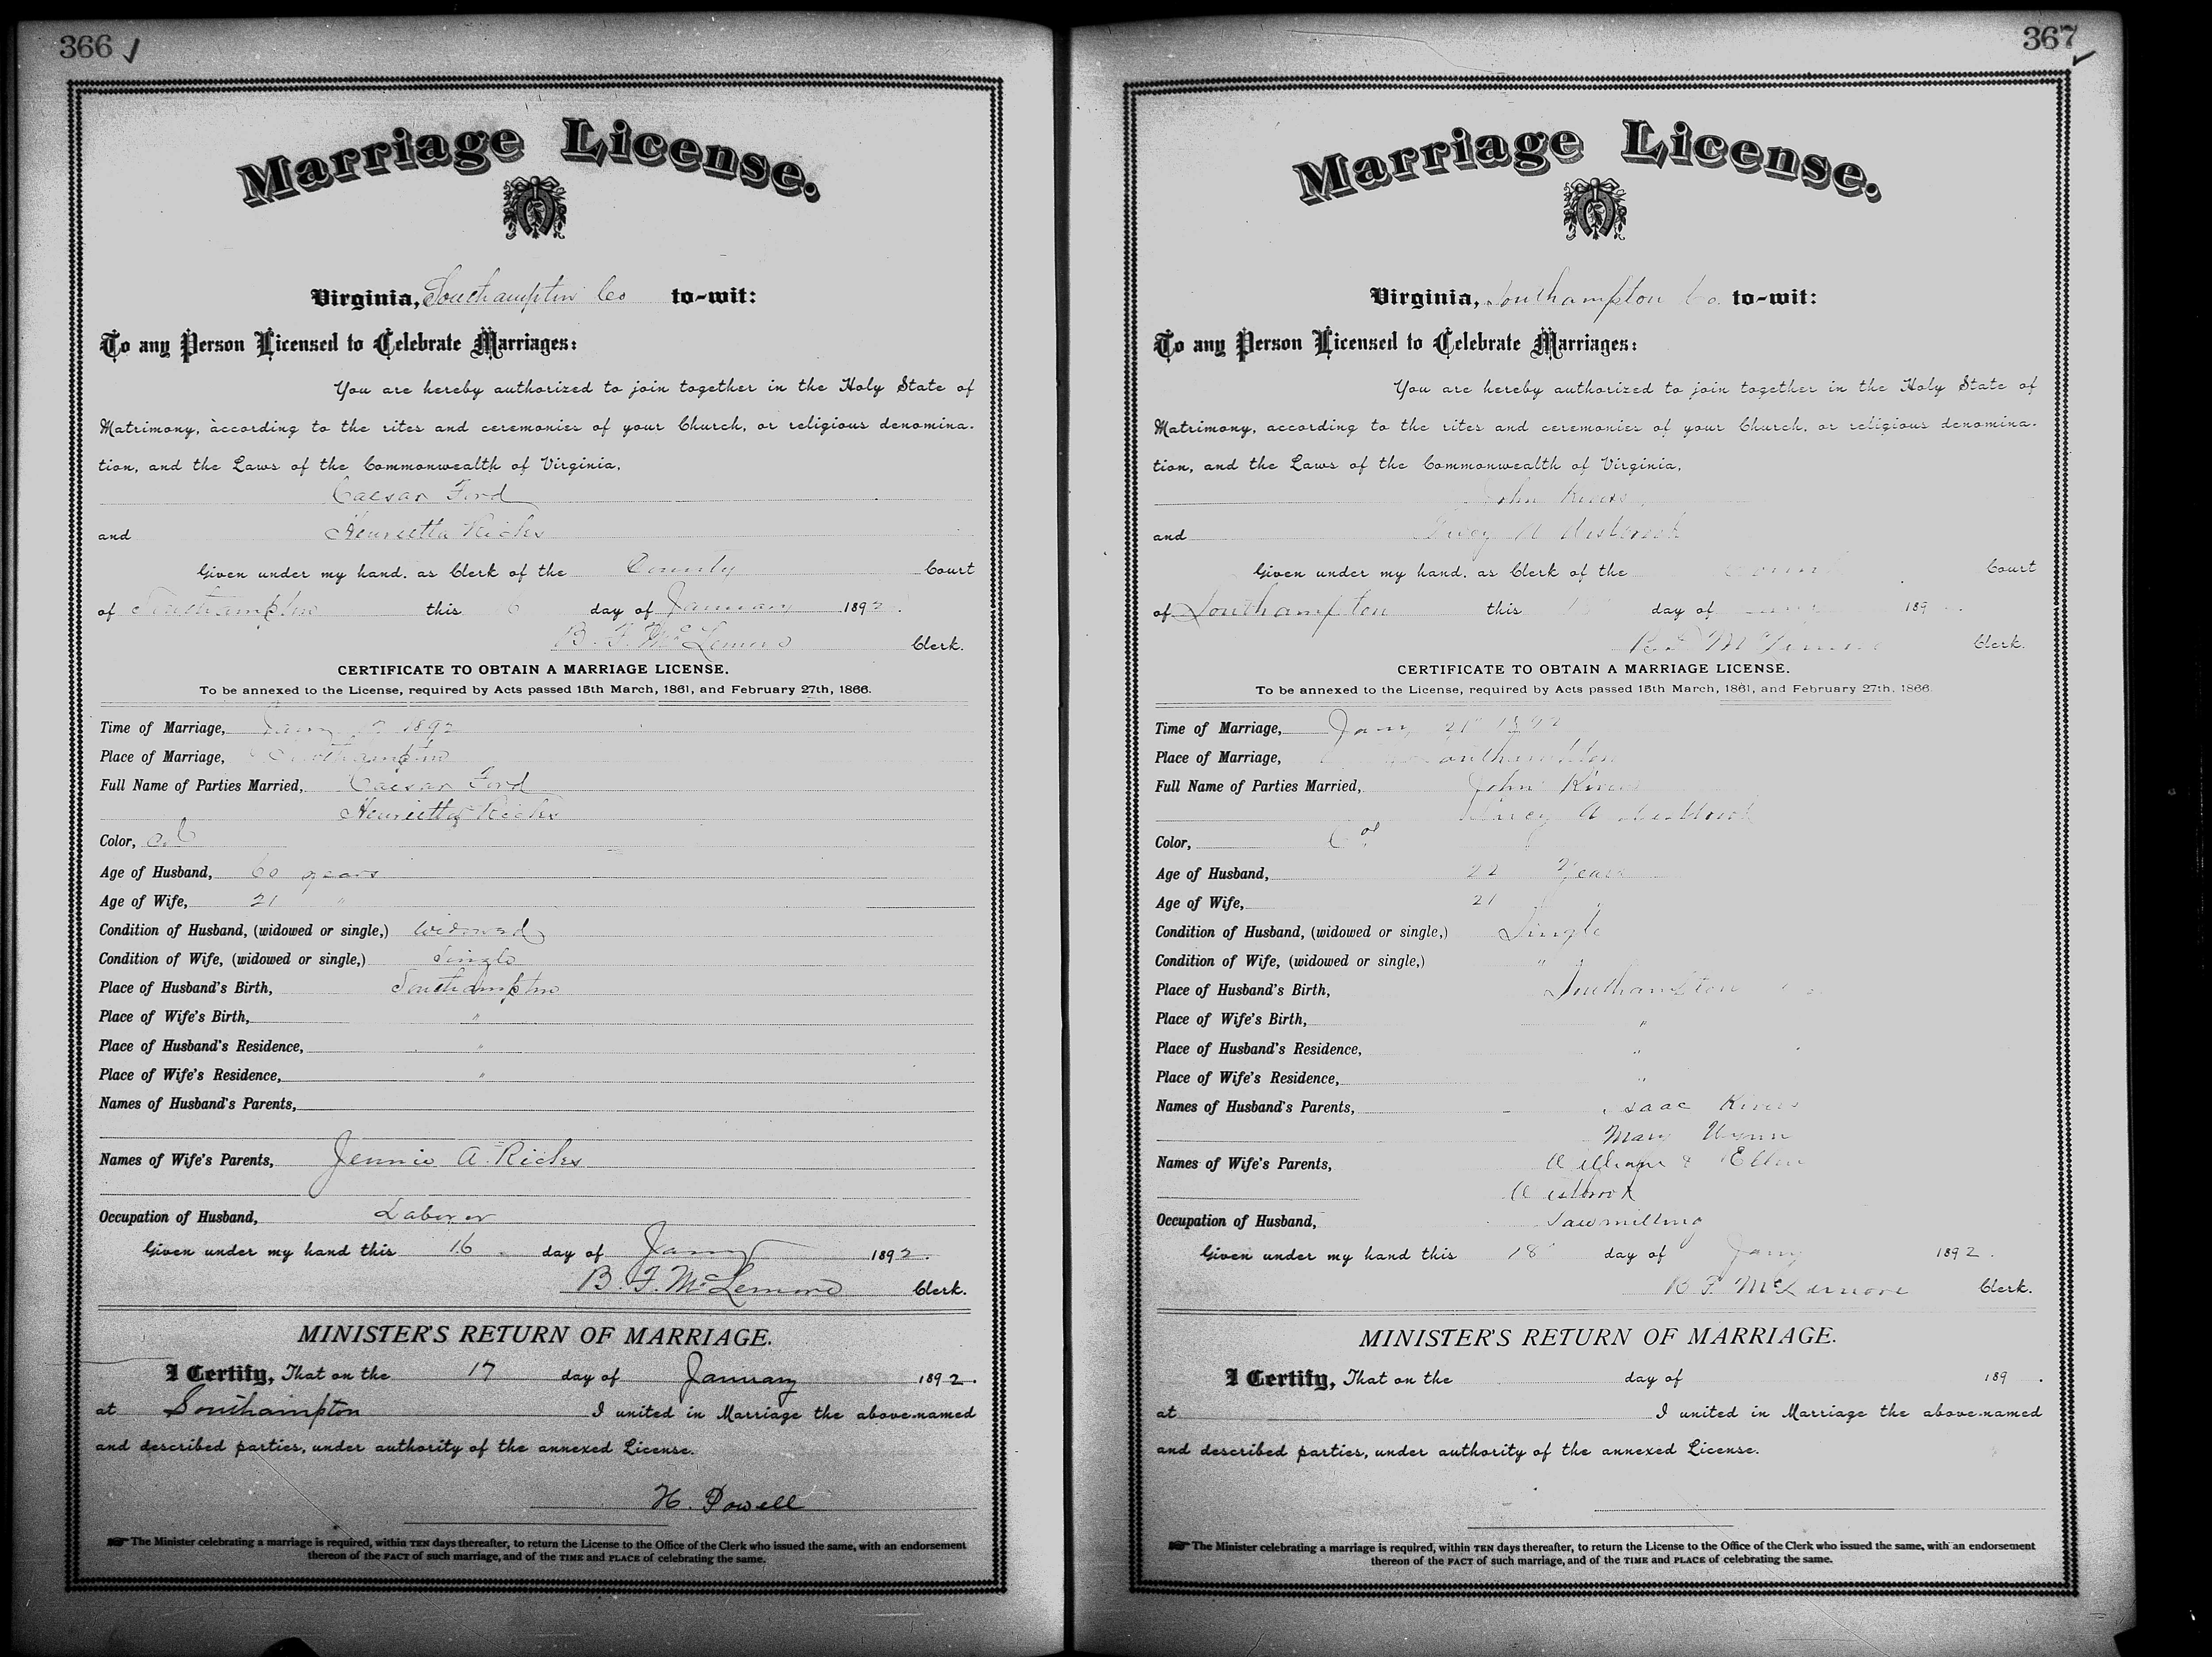 366
Marriage License.
Virginia, Southampton Co to-wit:
To any Person Licensed to Celebrate Marriages:
You are hereby authorized to join together in the Holy State of
Matrimony, according to the rites and ceremonies of your Church, or religious denomina-
tion, and the Laws of the Commonwealth of Virginia,
Caesar Ford
and Henrietta Ricks
Given under my hand, as Clerk of the County Court
of Southampton this 6 day of January 1892.
B. F. McLemore Clerk.
CERTIFICATE TO OBTAIN A MARRIAGE LICENSE.
To be annexed to the License, required by Acts passed 15th March, 1861, and February 27th, 1866.
Time of Marriage, Jany 17 1892
Place of Marriage, Southampton
Full Name of Parties Married, Caesar Ford
Henrietta Ricks
Color, Col
Age of Husband, 60 years
Age of Wife, 21 "
Condition of Husband, (widowed or single,) widowed
Condition of Wife, (widowed or single,) Single
Place of Husband's Birth, Southampton
Place of Wife's Birth, "
Place of Husband's Residence, "
Place of Wife's Residence, "
Names of Husband's Parents,
Names of Wife's Parents, Jennie A. Ricks
Occupation of Husband, Laborer
Given under my hand this 16 day of Jany 1892.
B. F. McLemore Clerk.
MINISTER'S RETURN OF MARRIAGE.
I Certify, That on the 17 day of January 1892.
at Southampton I united in Marriage the above-named
and described parties, under authority of the annexed License.
H. Powell
The Minister celebrating a marriage is required, within TEN days thereafter, to return the License to the Office of the Clerk who issued the same, with an endorsement
thereof of the FACT of such marriage, and of the TIME and PLACE of celebrating the same.
367
Marriage License.
Virginia, Southampton Co. to-wit:
To any Person Licensed to Celebrate Marriages:
You are hereby authorized to join together in the Holy State of
Matrimony, according to the rites and ceremonies of your Church, or religious denomina-
tion, and the Laws of the Commonwealth of Virginia,
John Rivers
and A Westbrook
Given under my hand, as Clerk of the Court
of Southampton this day of 189
McLemore Clerk.
CERTIFICATE TO OBTAIN A MARRIAGE LICENSE.
To be annexed to the License, required by Acts passed 15th March, 1861, and February 27th, 1866.
Time of Marriage, Jany 21st 1892
Place of Marriage, Southampton
Full Name of Parties Married, John Rivers
A Westbrook
Color, Col
Age of Husband, 22 Years
Age of Wife, 21
Condition of Husband, (widowed or single,) Single
Condition of Wife, (widowed or single,) "
Place of Husband's Birth, Southampton
Place of Wife's Birth, "
Place of Husband's Residence, "
Place of Wife's Residence, "
Names of Husband's Parents, Isaac Rivers
Mary Wynn
Names of Wife's Parents, William & Ellen
Westbrook
Occupation of Husband, Sawmilling
Given under my hand this 18 day of Jany 1892.
B F McLemore Clerk.
MINISTER'S RETURN OF MARRIAGE.
I Certify, That on the day of 189 .
at I united in Marriage the above-named
and described parties, under authority of the annexed License.
The Minister celebrating a marriage is required, within TEN days thereafter, to return the License to the Office of the Clerk who issued the same, with an endorsement
thereof of the FACT of such marriage, and of the TIME and PLACE of celebrating the same.